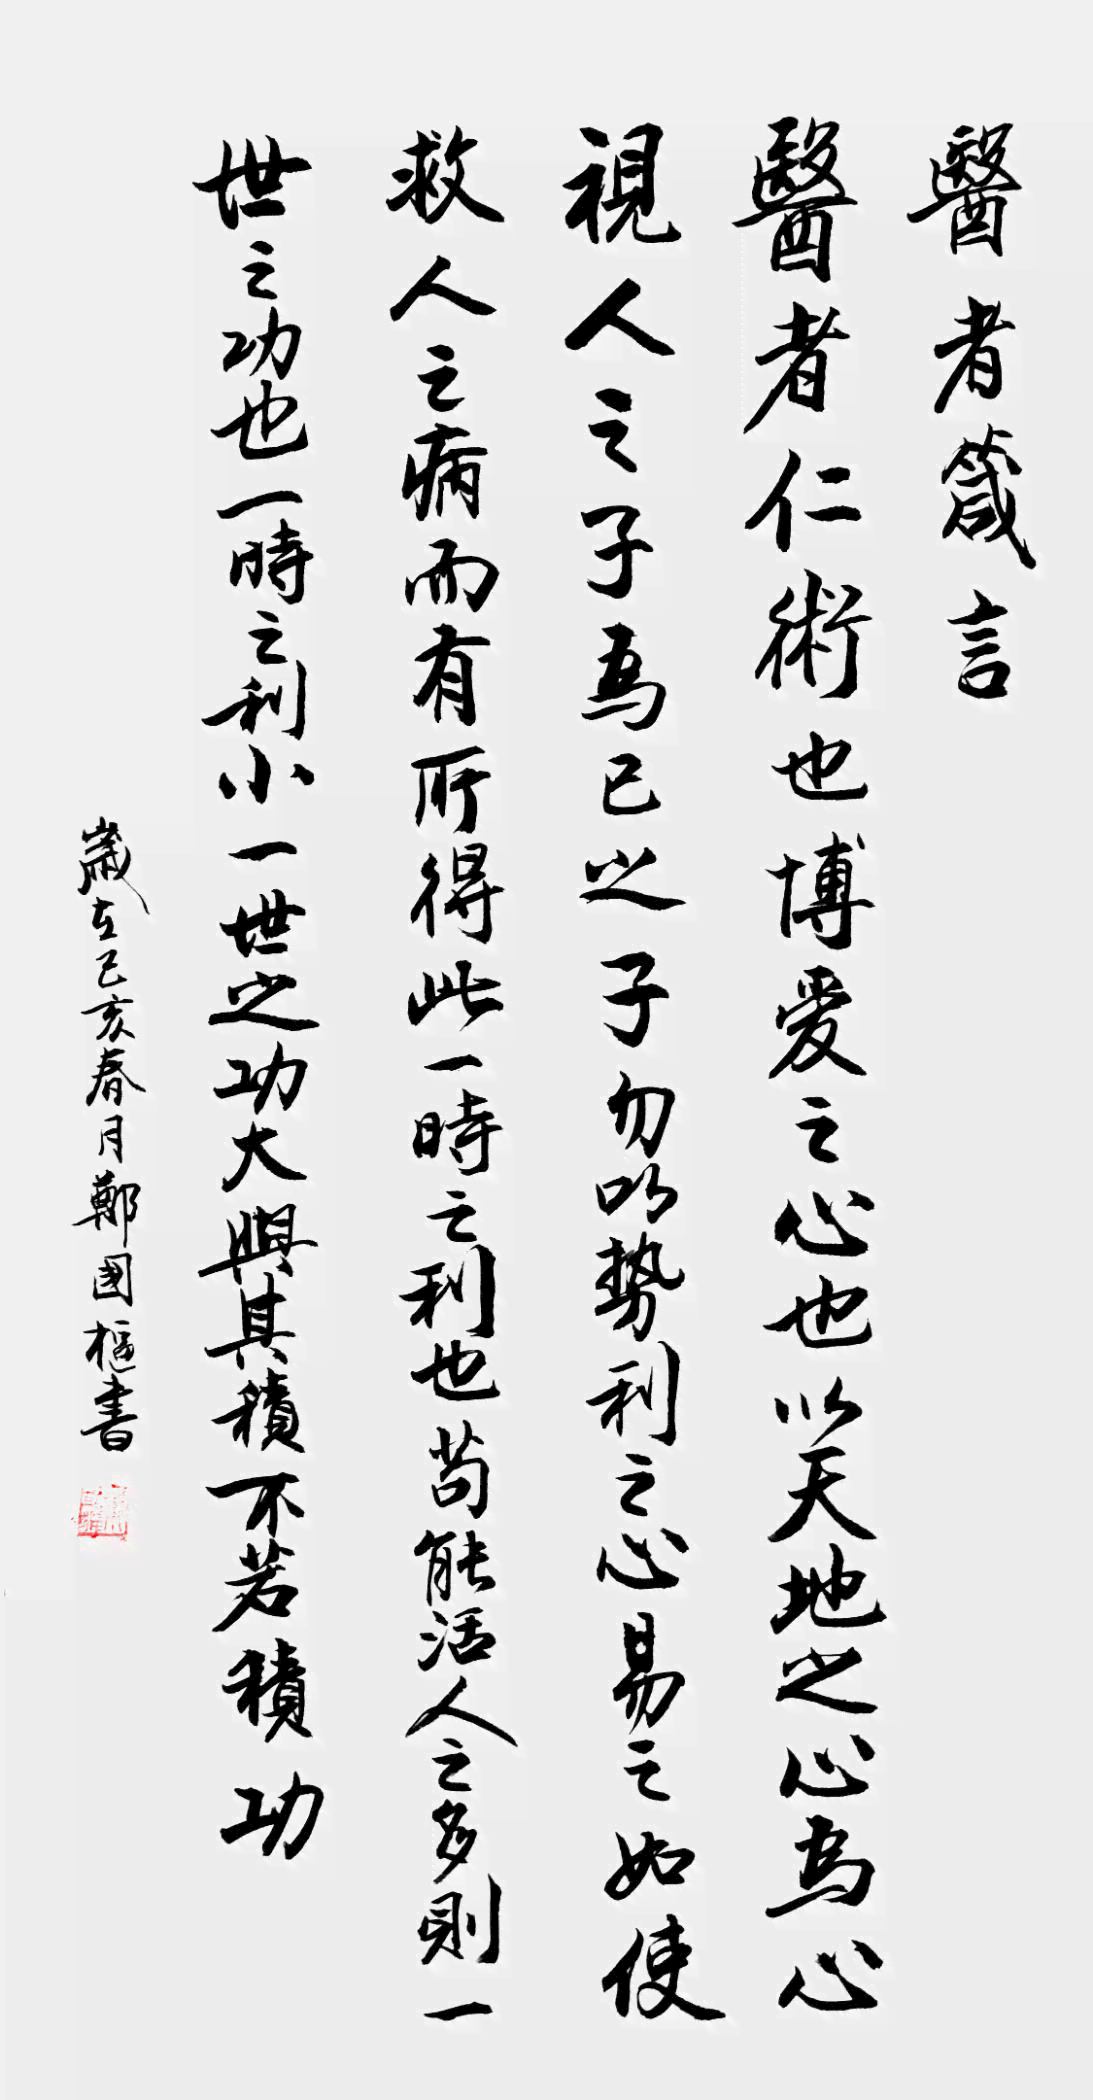 醫者箴言
醫者仁術也博爱之心也以天地之心為心
視人之子為己之子勿以勢利之心易之如使
救人之病而有所得此一時之利也苟能活人之多則一
世之功也一時之利小一世之功大與其積不若積功
歲在己亥春月鄭國樞書